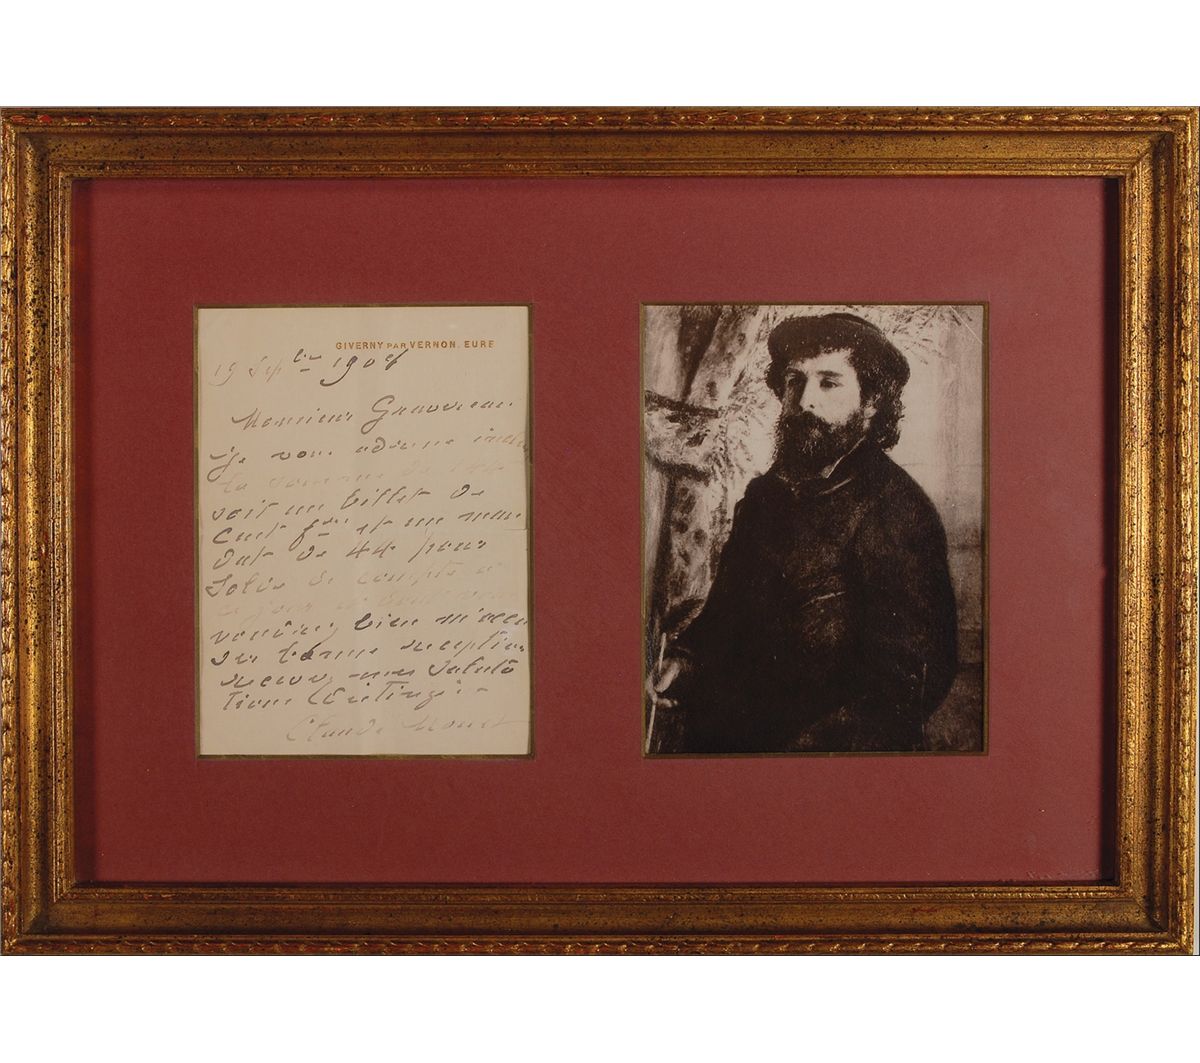 GIVERNY PAR VERNON. EURE
19 Septbre 1904
Monsieur Gravereau
je vous adresse
la somme de 144
soit un billet de
Cent frs et un man
dat de 44 pour
Solde de compte à
ce jour
voudrez bien m'accu
ser bonne reception
recevez mes Saluta
tions
Claude Monet